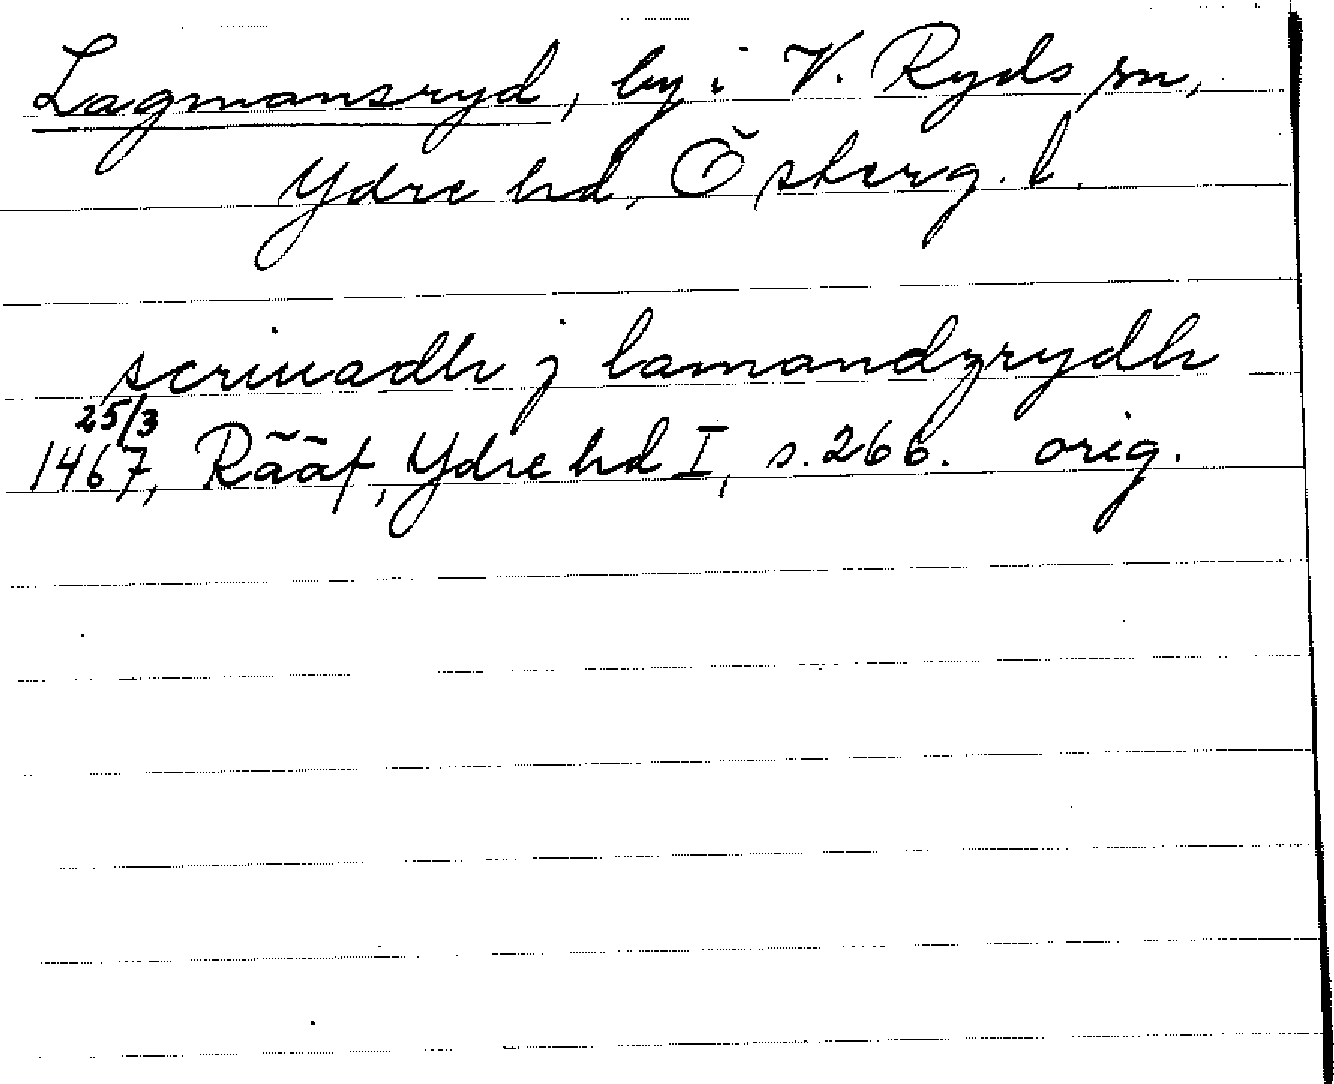 Lagmansryd, by i V. Ryds sn,
Ydre hd, Österg. l.
scriuadh j lamandzrydh
25/3
1467, Rääf, Ydre hd I, s. 266. orig.